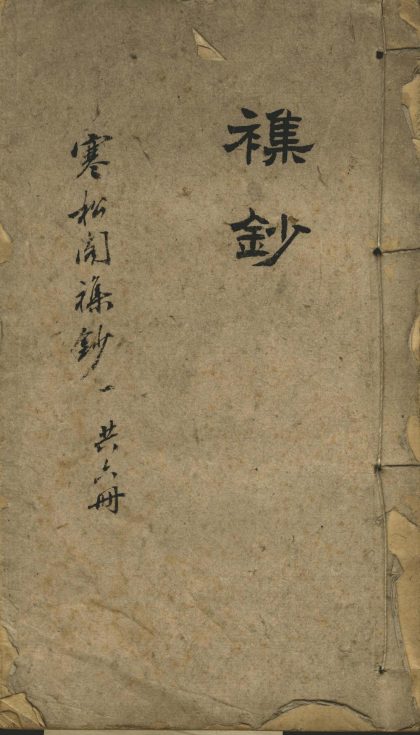 襍鈔
寒松閣襍鈔 一 共六冊